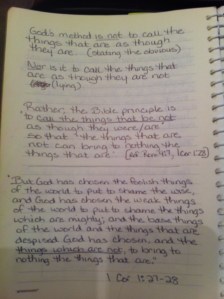 God's method is not to call the
things that are as though
they are. (stating the obvious)
Nor is it to call the things that
are as though they are not
(lying)
Rather, the Bible principle is
to call the things that be not
as though they were/are
so that "the things that are
not can bring to nothing the
things that are." 1 Cor 1:28
"But God has chosen the foolish things
of the world to put to shame the wise,
and God has chosen the weak things
of the world to put to shame the things
which are mighty; and the base things
of the world and the things that are
despised God has chosen, and the
things which are not, to bring to
nothing the things that are."
1 Cor 1:27-28